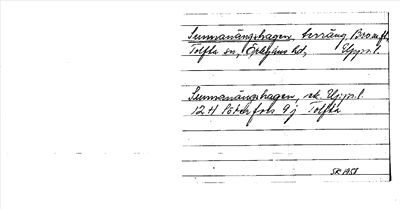 Sunnanängshagen, terräng, Bromfl.
Tolfta sn, Örbyhus hd, Upps. l.
Sunnanängshagen, ek. Upps. l
12 H Söderfors 9 j Tolfta
SK 1958